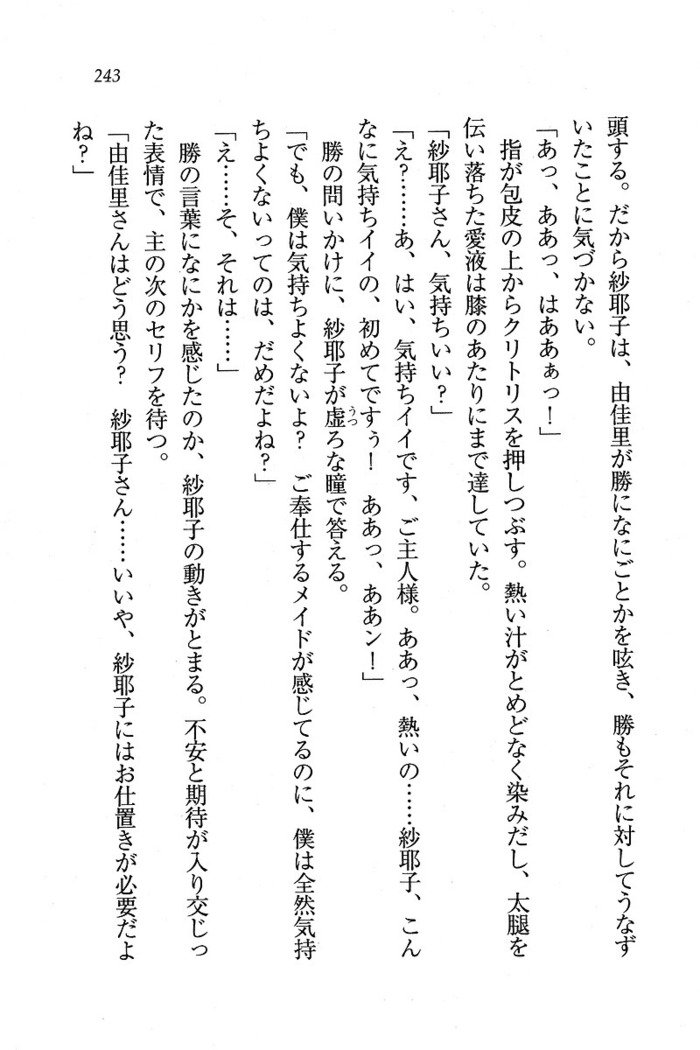 243
頭する。だから紗耶子は、由佳里が勝になにごとかを呟き、勝もそれに対してうなず
いたことに気づかない。
「あっ、ああっ、はああぁっ！」
　指が包皮の上からクリトリスを押しつぶす。熱い汁がとめどなく染みだし、太腿を
伝い落ちた愛液は膝のあたりにまで達していた。
「紗耶子さん、気持ちいい？」
「え？……あ、はい、気持ちイイです、ご主人様。ああっ、熱いの……紗耶子、こん
なに気持ちイイの、初めてですぅ！　ああっ、ああン！」
　勝の問いかけに、紗耶子が虚うつろな瞳で答える。
「でも、僕は気持ちよくないよ？　ご奉仕するメイドが感じてるのに、僕は全然気持
ちよくないってのは、だめだよね？」
「え……そ、それは……」
　勝の言葉になにかを感じたのか、紗耶子の動きがとまる。不安と期待が入り交じっ
た表情で、主の次のセリフを待つ。
「由佳里さんはどう思う？　紗耶子さん……いいや、紗耶子にはお仕置きが必要だよ
ね？」